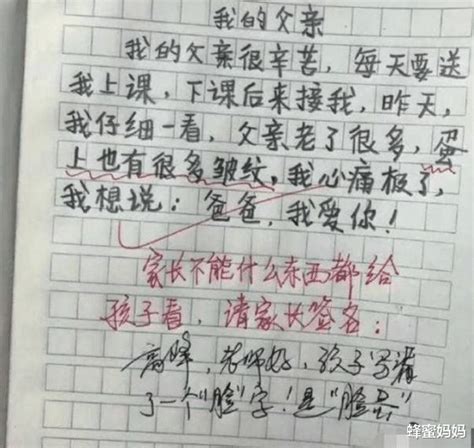 我的父亲
我的父亲很辛苦，每天要送
我上课，下课后来接我，昨天，
我仔细一看，父亲老了很多，蛋
上也有很多皱纹，我心痛极了，
我想说：爸爸，我爱你！
家长不能什么东西都给
孩子看，请家长签名：
高峰，老师好，孩子写漏
了一个“脸”字！是“脸蛋”
蜂蜜妈妈